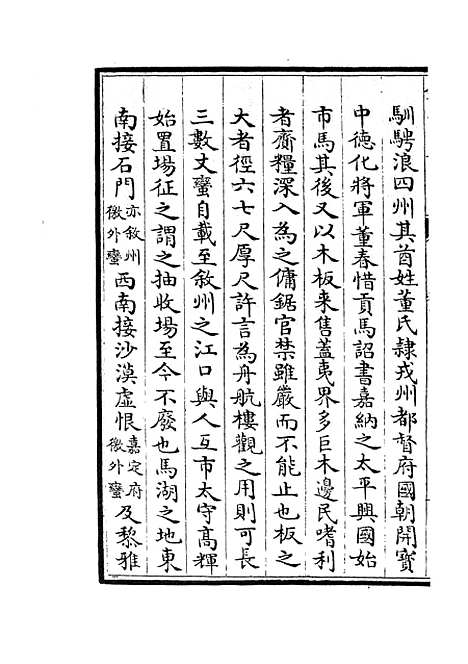 馴騁浪四州其首姓董氏隷戎州都督府國朝開寳
中徳化將軍董春惜貢馬詔書嘉納之太平興國始
市馬其後又以木板来售蓋夷界多巨木邊民嗜利
者齎糧深入為之傭鋸官禁雖嚴而不能止也板之
大者徑六七尺厚尺許言為舟航樓觀之用則可長
三數丈蠻自載至敘州之江口與人互市太守髙輝
始置場征之謂之抽收場至今不廢也馬湖之地東
南接石門亦敘州徼外蠻西南接沙漠虚恨嘉定府徼外蠻及黎雅